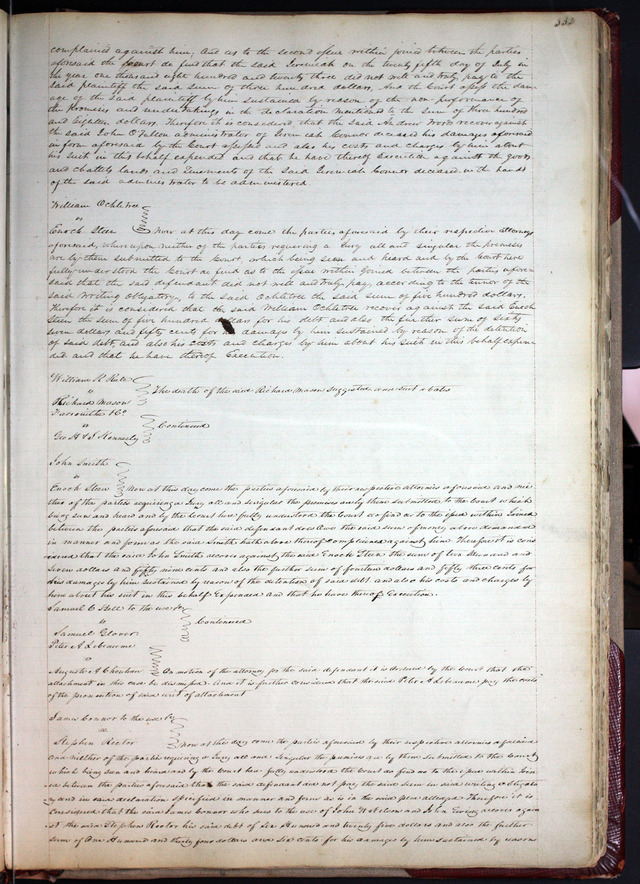 332
complained against him; And as to the second issue within joined between the parties
aforesaid the Court do find that the said Jeremiah on the twenty fifth day of July in
the year one thousand eight hundred and twenty three did not well and truly pay to the
said plaintiff the said sum of three hundred dollars, And the Court assess the dam-
age of the said plaintiff by him sustained by reason of the non performance of
the promises and undertakings in the declaration mentioned to the sum of three hundred
and eighteen dollars. Therefore it is considered that the said Andrew recover against
the said John O'Fallon administrator of Jeremiah Connor deceased his damages aforesaid
in form aforesaid by the Court assessed and also his costs and charges by him about
his suit in this behalf expended and that he have thereof Execution against the goods
and chattels lands and tenements of the said Jeremiah Connor deceased in the hands
of the said administrator to be administered.
William Ochletree
vs
Enoch Steen Now at this day come the parties aforesaid by their respective attorneys
aforesaid, whereupon neither of the parties requiring a Jury all and singular the premises
are by them submitted to the Court, which being seen and heard and by the Court here
fully understood the Court do find as to the issue within joined between the parties afore-
said that the said defendant did not well and truly pay, according to the tenor of the
said Writing Obligatory, to the said Ochletree the said sum of five hundred dollars.
Therefore it is considered that the said William Ochletree recover against the said Enoch
Steen the sum of five hundred dollars for his debt and also the further sum of sixty
seven dollars and fifty cents for damages by him sustained by reason of the detention
of said debt, and also his costs and charges by him about his suit in this behalf expen-
ded and that he have thereof Execution.
William R
vs
Richard Mason
The death of the said Richard Mason suggested and suit abates
& Co
vs
Geo H & J Kennerly
Continued
John Smith
vs
Enoch Steen Now at this day come the parties aforesaid by their respective attornies aforesaid and nei-
ther of the parties requiring a Jury all and singular the premises are by them submitted to the Court which
being seen and heard and by the Court here fully understood the Court do find as to the issue within Joined
between the parties aforesaid that the said defendant does owe the said sum of money above demanded
in manner and form as the said Smith hath above thereof complained against him Therefore it is cons
idered that the said John Smith recover against the said Enoch Steen the sum of two hundred and
seven dollars and fifty nine cents and also the further sum of fourteen dollars and fifty three cents for
his damages by him sustained by reason of the detention of said debt and also his costs and charges by
him about his suit in this behalf Expended and that he have thereof Execution.
Samuel C to the use &c
vs
Samuel Glover
Continued
Peter A Lebeaume
vs
Auguste A Chouteau On motion of the attorney for the said defendant it is ordered by the Court that the
attachment in this case be dismissed. And it is further considered that the said Peter A Lebeaume pay the costs
of the prosecution of said writ of attachment
James Connor to the use &c
vs
Stephen Rector Now at this day come the parties aforesaid by their respective attornies aforesaid
and neither of the parties requiring a Jury all and singular the premises are by them submitted to the Court
which being seen and heard and by the Court here fully understood the Court do find as to the issue within Join
ed between the parties aforesaid that the said defendant did not pay the said sum in said writing obligato
ry and in said declaration specified in manner and form as is in the said plea alleged Therefore it is
Considered that the said James Connor who sues to the use of John and John recover again
st the said Stephen Rector his said debt of Six Hundred and twenty five dollars and also the further
sum of One Hundred and thirty four dollars and six cents for his damages by him sustained by reason